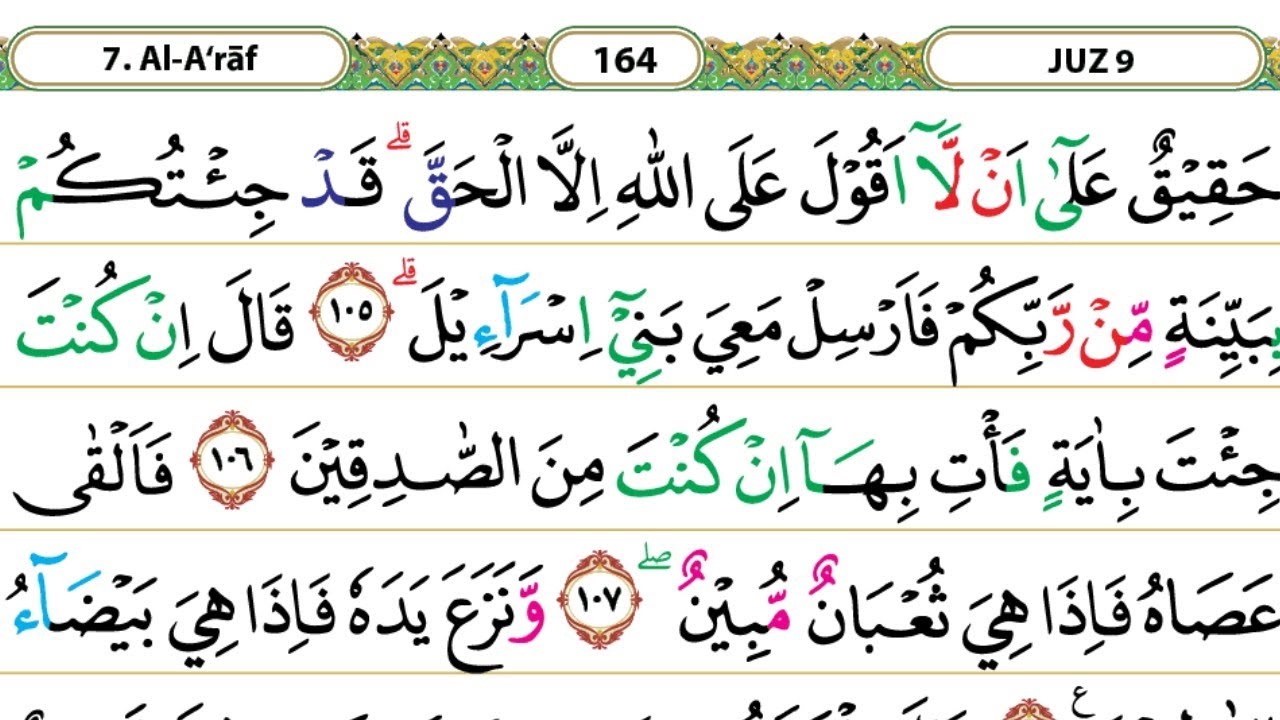 7. Al-A‘rāf 164 JUZ 9
حَقِيْقٌ عَلٰٓى اَنْ لَّآ اَقُوْلَ عَلَى اللّٰهِ اِلَّا الْحَقَّۗ قَدْ جِئْتُكُمْ
بِبَيِّنَةٍ مِّنْ رَّبِّكُمْ فَاَرْسِلْ مَعِيَ بَنِيْٓ اِسْرَاۤءِيْلَۗ ١٠٥ قَالَ اِنْ كُنْتَ
جِئْتَ بِاٰيَةٍ فَأْتِ بِهَآ اِنْ كُنْتَ مِنَ الصّٰدِقِيْنَ ١٠٦ فَاَلْقٰى
عَصَاهُ فَاِذَا هِيَ ثُعْبَانٌ مُّبِيْنٌۖ ١٠٧ وَّنَزَعَ يَدَهٗ فَاِذَا هِيَ بَيْضَاۤءُ